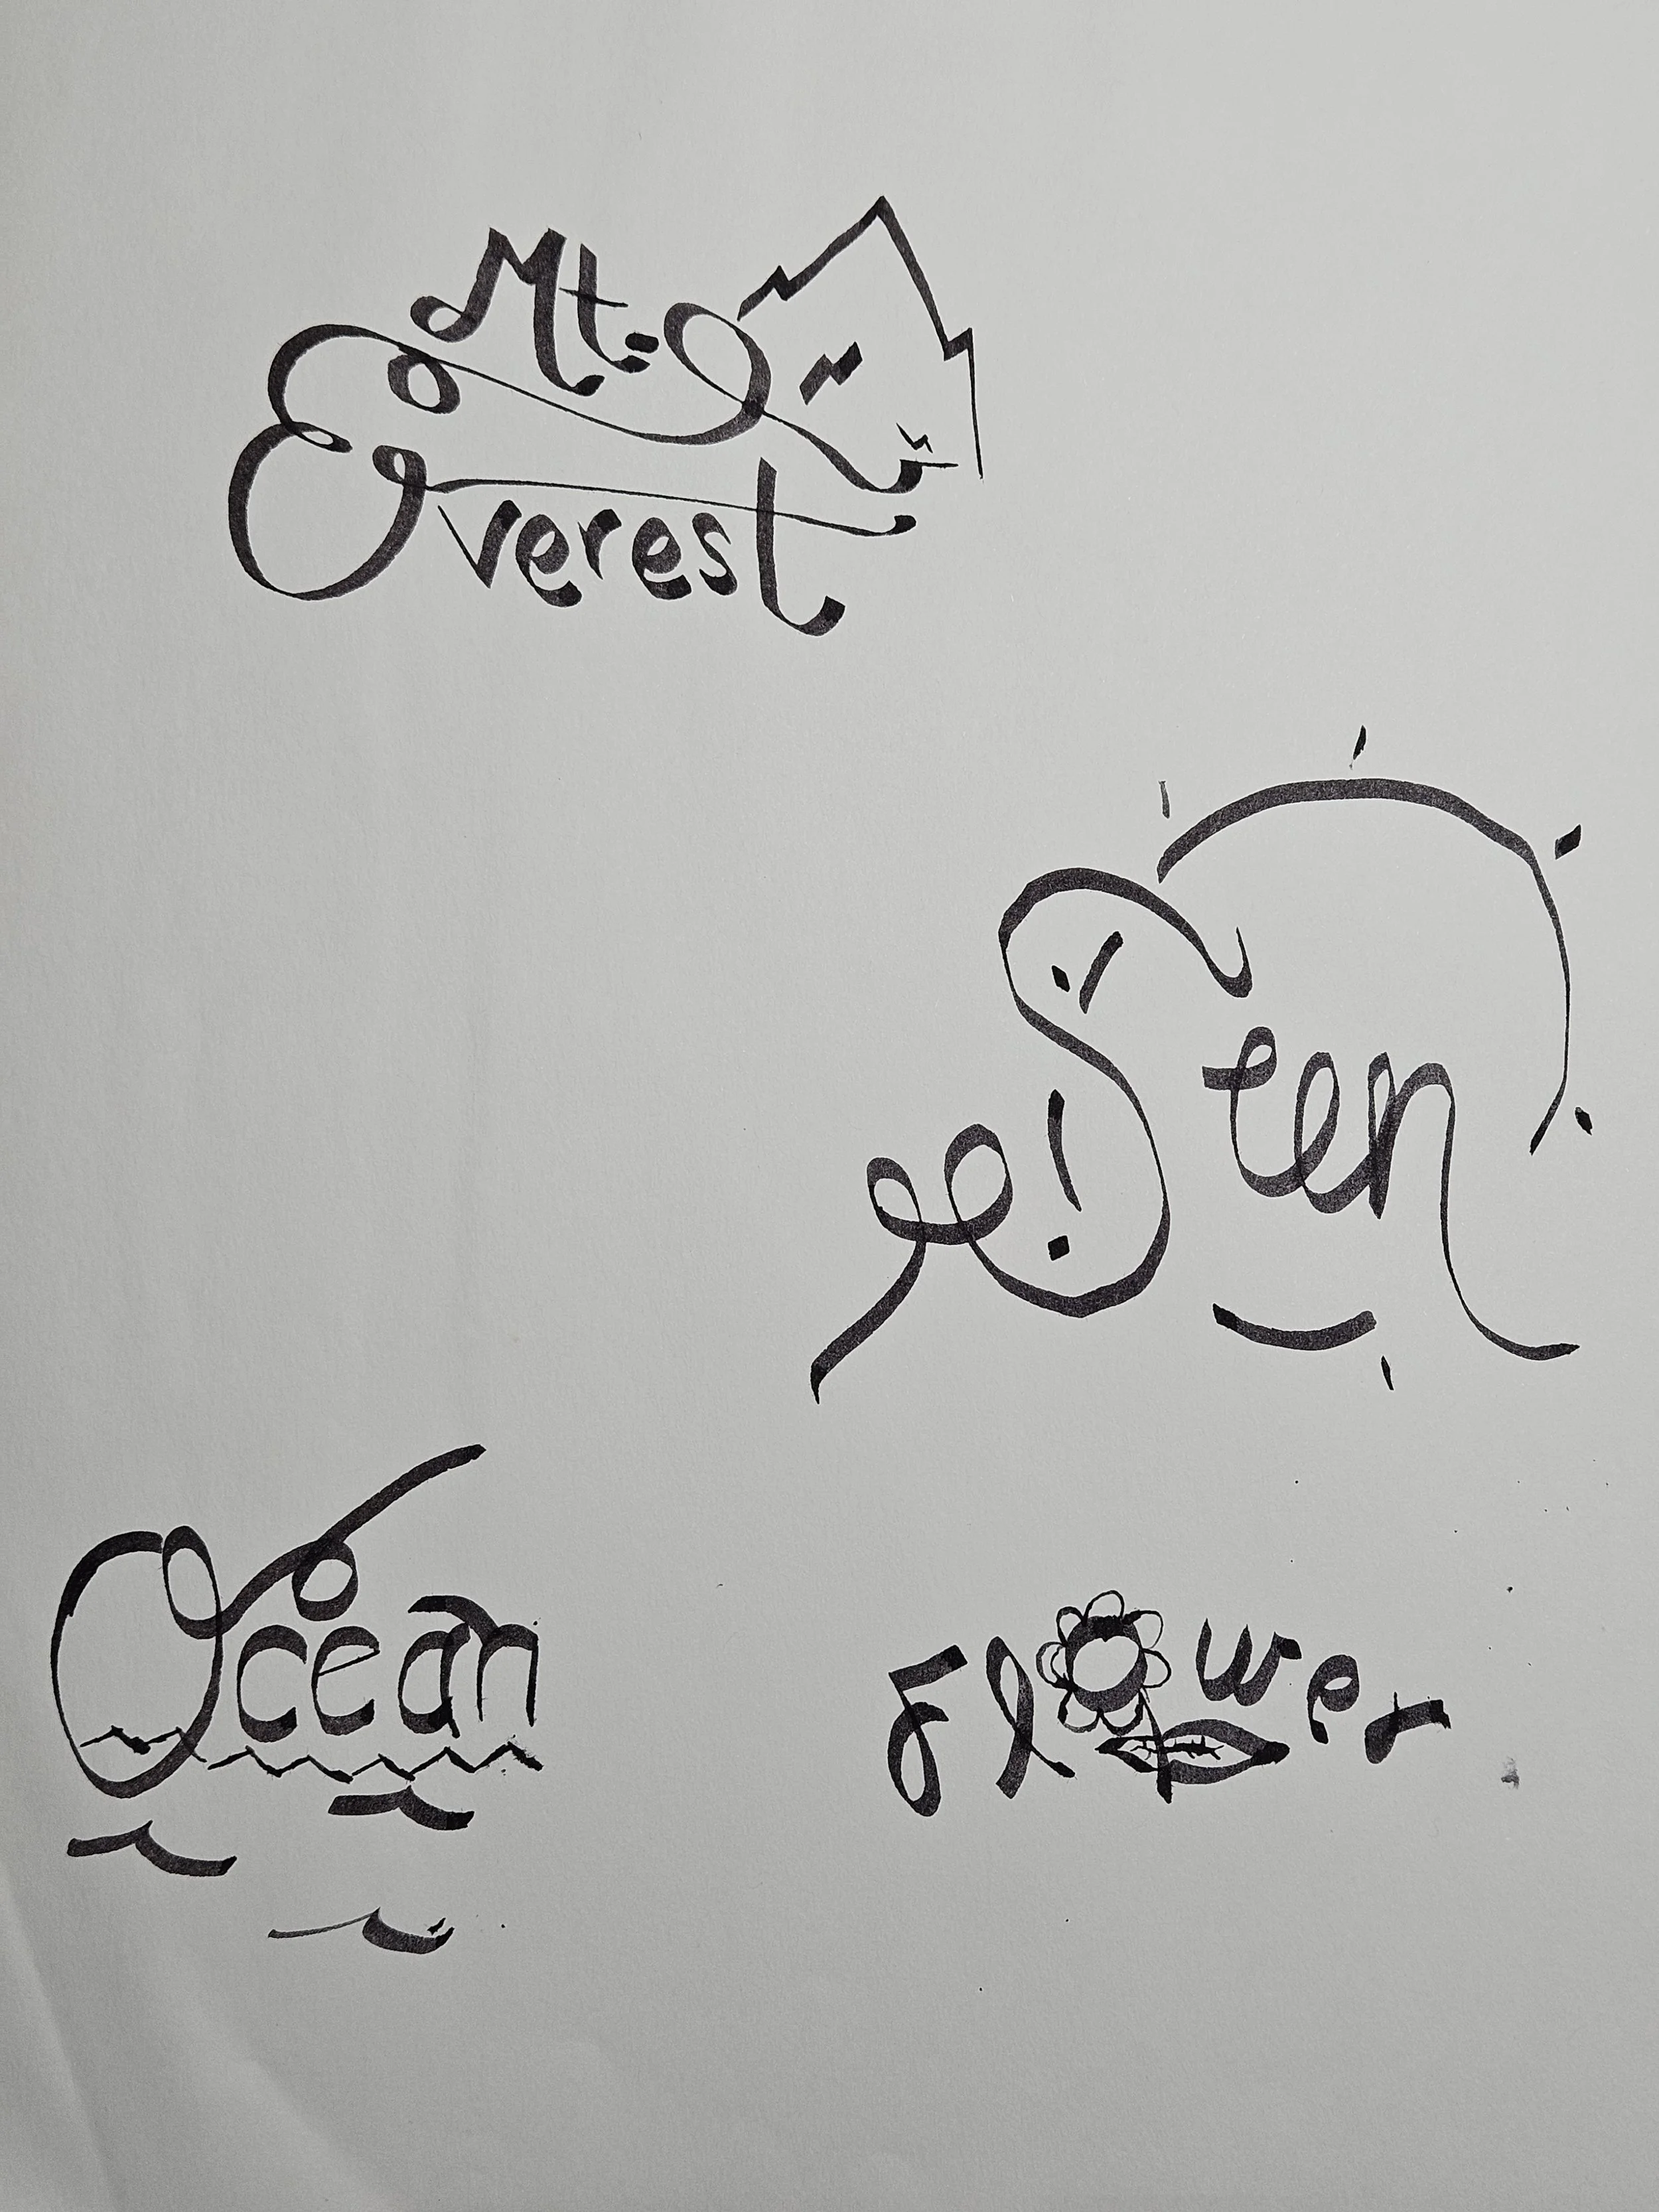 Mt.
Everest
Sun
Ocean
Flower